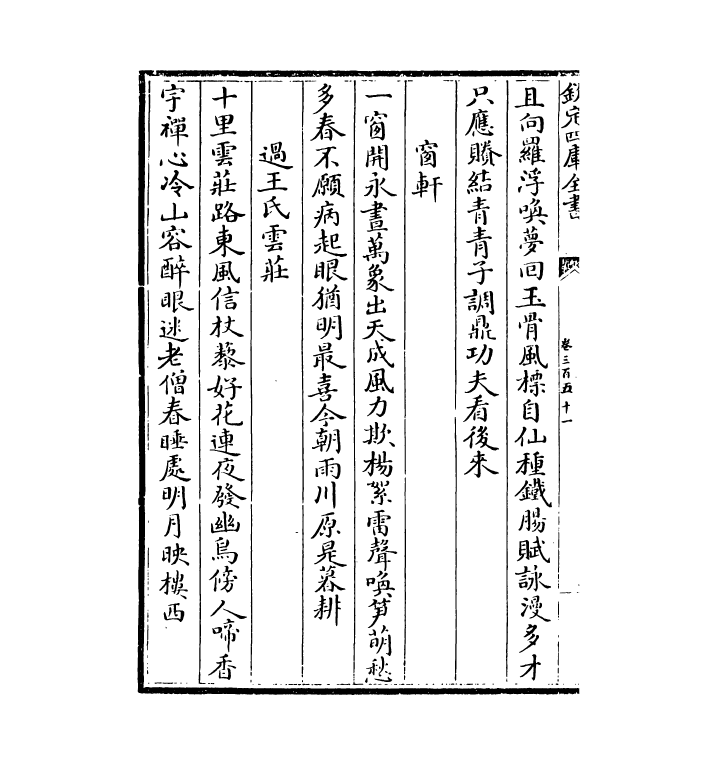 欽定四庫全書
卷三百五十一
且向羅浮喚夢回玉骨風標自仙種鐵腸賦詠漫多才
只應賸結青青子調鼎功夫看後來
窗軒
一窗開永晝萬象出天成風力欺楊絮雷聲喚筍萌愁
多春不願病起眼猶明最喜今朝雨川原是暮耕
過王氏雲莊
十里雲莊路東風信杖藜好花連夜發幽鳥傍人啼香
宇禪心冷山容醉眼迷老僧春睡處明月映樓西